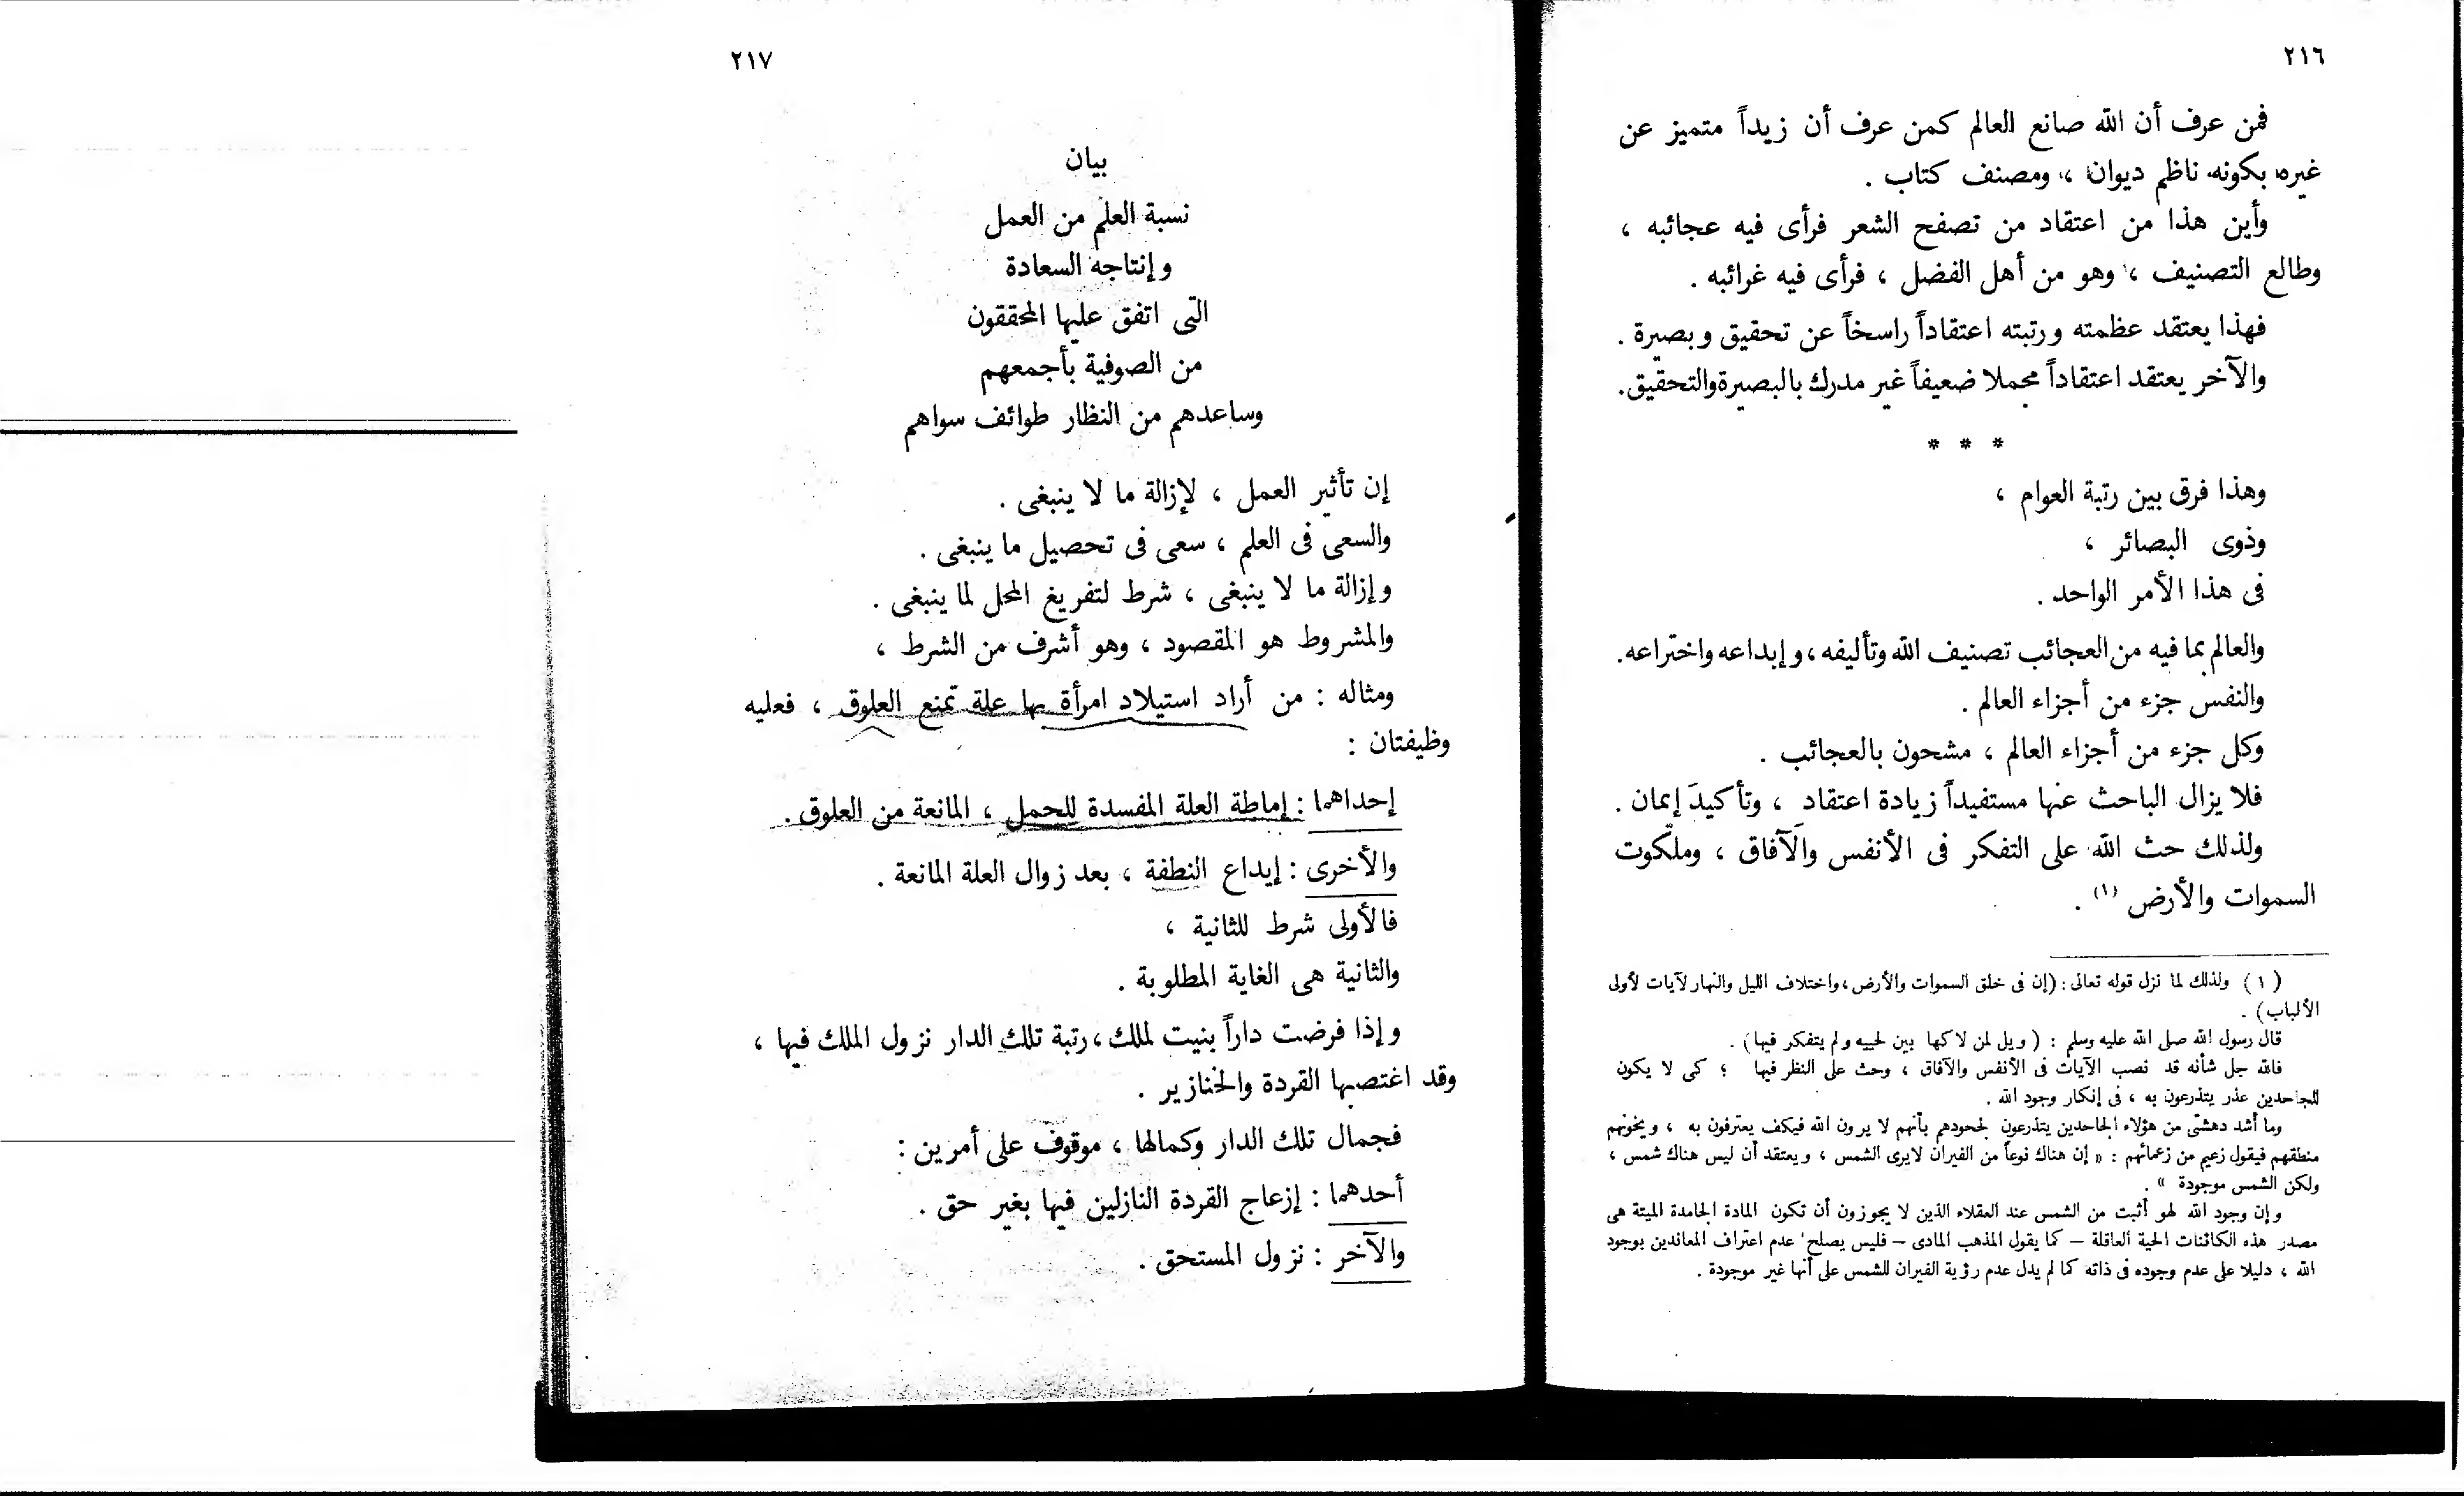 ٢١٦
فمن عرف أن الله صانع العالم كمن عرف أن زيداً متميز عن
غيره بكونه ناظم ديوان ، ومصنف كتاب .
وأين هذا من اعتقاد من تصفح الشعر فرأى فيه عجائبه ،
وطالع التصنيف ، وهو من أهل الفضل ، فرأى فيه غرائبه .
فهذا يعتقد عظمته ورتبته اعتقاداً راسخاً عن تحقيق وبصيرة .
والآخر يعتقد اعتقاداً مجملا ضعيفاً غير مدرك بالبصيرة والتحقيق.
* * *
وهذا فرق بين رتبة العوام ،
وذوى البصائر ،
فى هذا الأمر الواحد .
والعالم بما فيه من العجائب تصنيف الله وتأليفه ، وإبداعه واختراعه.
والنفس جزء من أجزاء العالم .
وكل جزء من أجزاء العالم ، مشحون بالعجائب .
فلا يزال الباحث عنها مستفيداً زيادة اعتقاد ، وتأكيدَ إيمان .
ولذلك حث الله على التفكر فى الأنفس والآفاق ، وملكوت
السموات والأرض (١) .
(١) ولذلك لما نزل قوله تعالى : (إن فى خلق السموات والأرض ، واختلاف الليل والنهار لآيات لأولى
الألباب) .
قال رسول الله صلى الله عليه وسلم : (ويل لمن لاكها بين لحييه ولم يتفكر فيها) .
فالله جل شأنه قد نصب الآيات فى الأنفس والآفاق ، وحث على النظر فيها ؛ كى لا يكون
للجاحدين عذر يتذرعون به ، فى إنكار وجود الله .
وما أشد دهشتى من هؤلاء الجاحدين يتذرعون لجحودهم بأنهم لا يرون الله فيكف يعترفون به ، ويخونهم
منطقهم فيقول زعيم من زعمائهم : « إن هناك نوعاً من الفيران لايرى الشمس ، ويعتقد أن ليس هناك شمس ،
ولكن الشمس موجودة » .
وإن وجود الله لهو أثبت من الشمس عند العقلاء الذين لا يجوزون أن تكون المادة الجامدة الميتة هى
مصدر هذه الكائنات الحية العاقلة – كما يقول المذهب المادى – فليس يصلح عدم اعتراف المعاندين بوجود
الله ، دليلا على عدم وجوده فى ذاته كما لم يدل عدم رؤية الفيران للشمس على أنها غير موجودة .
٢١٧
بيان
نسبة العلم من العمل
وإنتاجه السعادة
التى اتفق عليها المحققون
من الصوفية بأجمعهم
وساعدهم من النظار طوائف سواهم
إن تأثير العمل ، لإزالة ما لا ينبغى .
والسعى فى العلم ، سعى فى تحصيل ما ينبغى .
وإزالة ما لا ينبغى ، شرط لتفريغ المحل لما ينبغى .
والمشروط هو المقصود ، وهو أشرف من الشرط ،
ومثاله : من أراد استيلاد امرأة بها علة تمنع العلوق ، فعليه
وظيفتان :
إحداهما : إماطة العلة المفسدة للحمل ، المانعة من العلوق .
والأخرى : إيداع النطفة ، بعد زوال العلة المانعة .
فالأولى شرط للثانية ،
والثانية هى الغاية المطلوبة .
وإذا فرضت داراً بنيت لملك ، رتبة تلك الدار نزول الملك فيها ،
وقد اغتصبها القردة والخنازير .
فجمال تلك الدار وكمالها ، موقوف على أمرين :
أحدهما : إزعاج القردة النازلين فيها بغير حق .
والآخر : نزول المستحق .